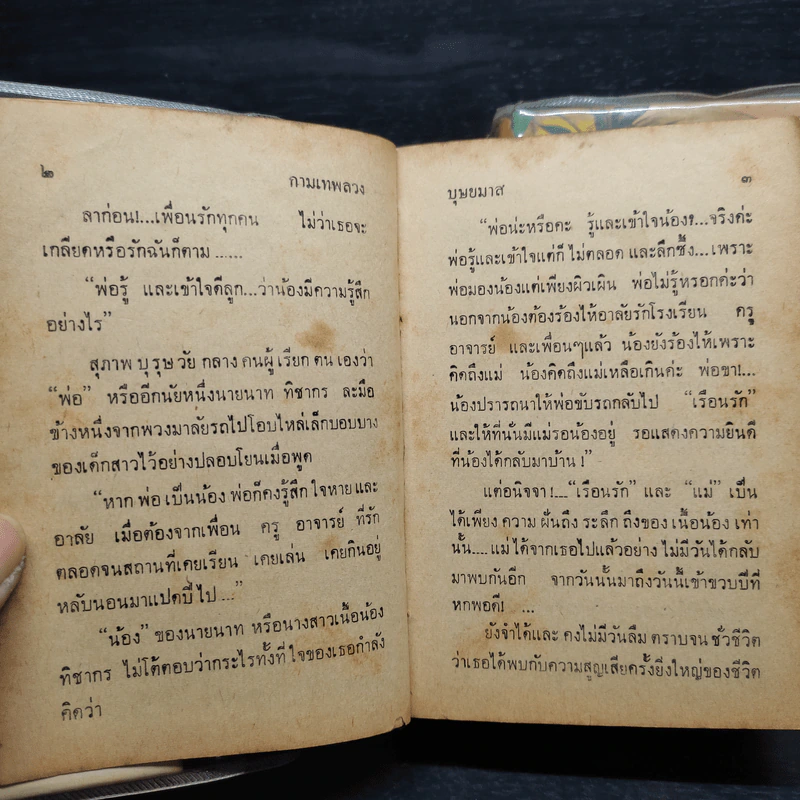 ๒
กามเทพลวง
ลาก่อน!...เพื่อนรักทุกคน ไม่ว่าเธอจะ
เกลียดหรือรักฉันก็ตาม ......
“พ่อรู้ และเข้าใจดีลูก...ว่าน้องมีความรู้สึก
อย่างไร”
สุภาพ บุรุษ วัย กลาง คนผู้ เรียก ตน เองว่า
“พ่อ” หรืออีกนัยหนึ่งนายนาท ทิชากร ละมือ
ข้างหนึ่งจากพวงมาลัยรถไปโอบไหล่เล็กบอบบาง
ของเด็กสาวไว้อย่างปลอบโยนเมื่อพูด
“หาก พ่อ เป็นน้อง พ่อก็คงรู้สึก ใจหาย และ
อาลัย เมื่อต้องจากเพื่อน ครู อาจารย์ ที่รัก
ตลอดจนสถานที่เคยเรียน เคยเล่น เคยกินอยู่
หลับนอนมาแปดปี ไป ...”
“น้อง” ของนายนาท หรือนางสาวเนื้อน้อง
ทิชากร ไม่โต้ตอบว่ากระไรทั้งที่ ใจของเธอกำลัง
คิดว่า
บุษยมาส
๓
“พ่อน่ะหรือคะ รู้และเข้าใจน้อง?...จริงค่ะ
พ่อรู้และเข้าใจแต่ก็ ไม่ตลอด และลึกซึ้ง...เพราะ
พ่อมองน้องแต่เพียงผิวเผิน พ่อไม่รู้หรอกค่ะว่า
นอกจากน้องต้องร้องไห้อาลัยรักโรงเรียน ครู
อาจารย์ และเพื่อนๆแล้ว น้องยังร้องไห้เพราะ
คิดถึงแม่ น้องคิดถึงแม่เหลือเกินค่ะ พ่อขา!...
น้องปรารถนาให้พ่อขับรถกลับไป “เรือนรัก”
และให้ที่นั่นมีแม่รอน้องอยู่ รอแสดงความยินดี
ที่น้องได้กลับมาบ้าน !”
แต่อนิจจา!...“เรือนรัก” และ “แม่” เป็น
ได้เพียง ความ ฝันถึง ระลึก ถึงของ เนื้อน้อง เท่า
นั้น.... แม่ ได้จากเธอไปแล้วอย่าง ไม่มีวันได้กลับ
มาพบกันอีก จากวันนั้นมาถึงวันนี้เข้าขวบปีที่
หกพอดี! ...
ยังจำได้และ คงไม่มีวันลืม ตราบจน ชั่วชีวิต
ว่าเธอได้พบกับความสูญเสียครั้งยิ่งใหญ่ของชีวิต